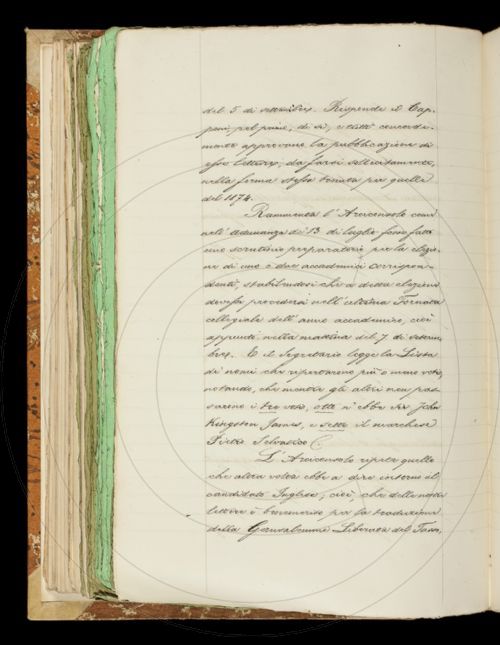 del 5 di settembre. Risponde il Cap-
poni, pel primo, di sì, e tutti concorde-
mente approvano la pubblicazione di
esse lettere, da farsi sollecitamente,
nella forma stessa tenuta per quelle
del 1874.
Rammenta l'Arciconsolo come
nell'adunanza de' 13 di luglio fosse fatto
uno scrutinio preparatorio per la elezio-
ne di uno o due accademici corrispon-
denti, stabilendosi che a detta elezione
dovesse procedersi nell'ultima Tornata
collegiale dell'anno accademico, cioè
appunto nella mattina del 7 di settem-
bre. E il Segretario legge la Lista
di nomi che riportarono più o meno voti,
notando, che mentre gli altri non pas-
sarono i tre voti, otto n'ebbe Sir John
Kingston James, e sette il marchese
Pietro Selvatico.
L'Arciconsolo ripete quello
che altra volta ebbe a dire intorno al
candidato Inglese, cioè, che delle nostre
lettere è benemerito per la traduzione
della Gerusalemme Liberata del Tasso,